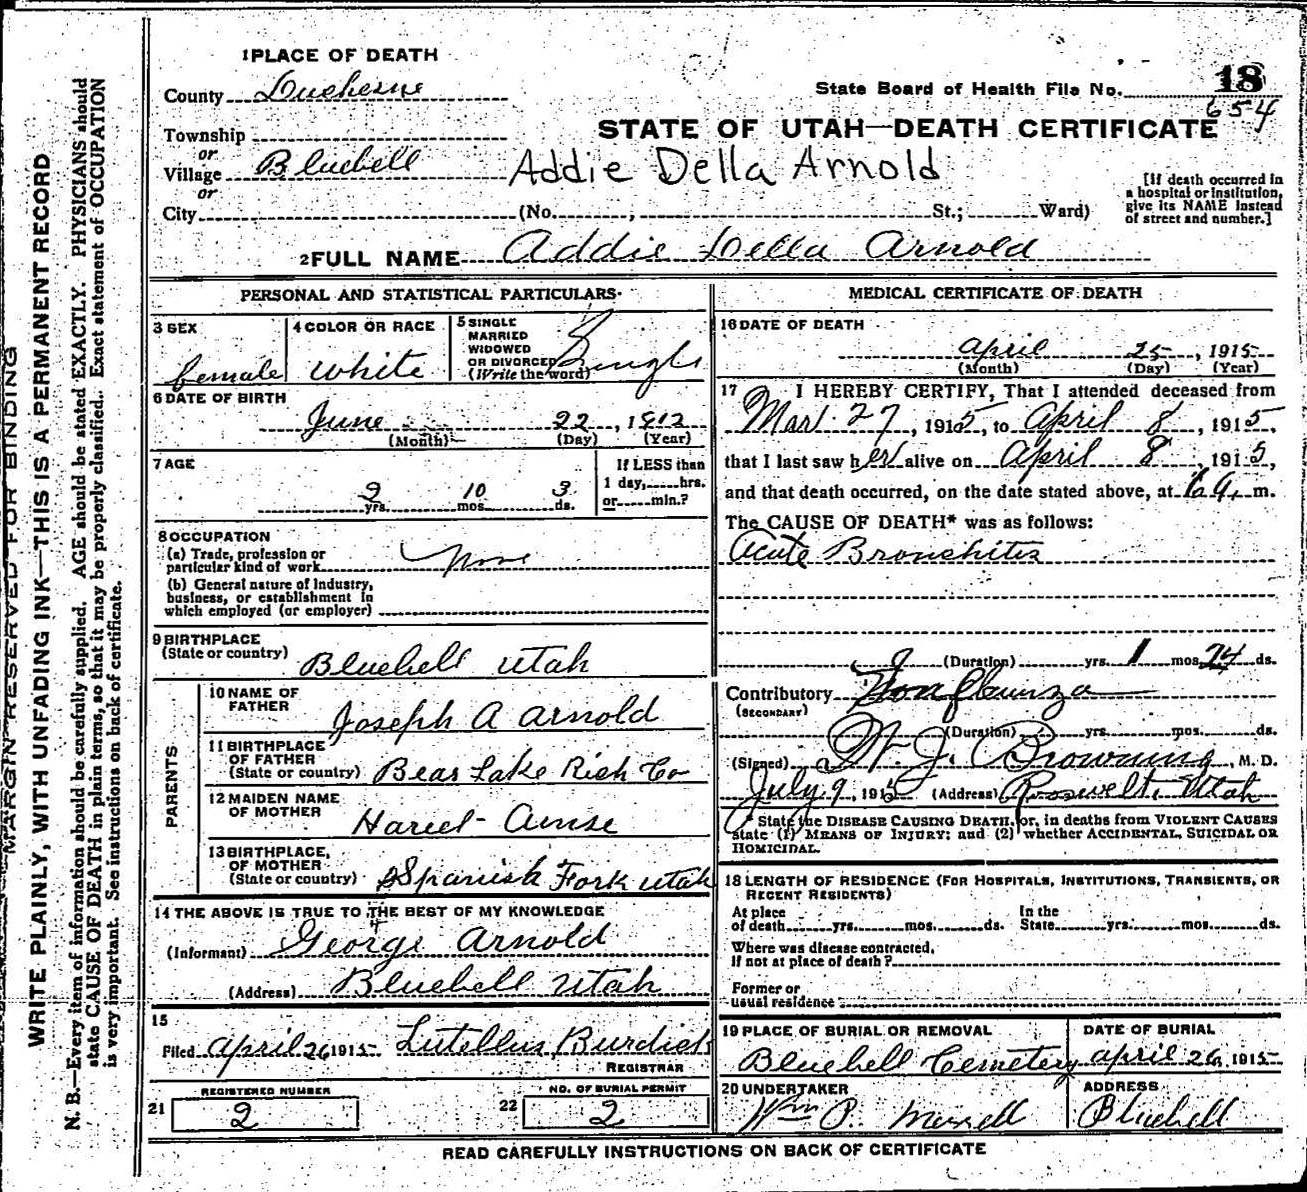 1 PLACE OF DEATH
County Duchesne
State Board of Health File No. 18
654
Township
or
Village Bluebell
or
City (No. ; St.; Ward)
STATE OF UTAH—DEATH CERTIFICATE
Addie Della Arnold
[If death occurred in
a hospital or institution,
give its NAME instead
of street and number.]
2 FULL NAME Addie Della Arnold
PERSONAL AND STATISTICAL PARTICULARS
3 SEX
female
4 COLOR OR RACE
White
5 SINGLE
MARRIED
WIDOWED
OR DIVORCED
(Write the word) Single
6 DATE OF BIRTH
June 22, 1912
(Month) (Day) (Year)
7 AGE
2 10 3
yrs. mos. ds.
If LESS than
1 day, hrs.
or min.?
8 OCCUPATION
(a) Trade, profession or
particular kind of work None
(b) General nature of Industry,
business, or establishment in
which employed (or employer)
9 BIRTHPLACE
(State or country) Bluebell Utah
PARENTS
10 NAME OF
FATHER Joseph A Arnold
11 BIRTHPLACE
OF FATHER
(State or country) Bear Lake Rich Co
12 MAIDEN NAME
OF MOTHER
13 BIRTHPLACE,
OF MOTHER
(State or country) Spanish Fork Utah
14 THE ABOVE IS TRUE TO THE BEST OF MY KNOWLEDGE
(Informant) George Arnold
(Address) Bluebell Utah
15
Filed April 26 1915 Lutellus Burdick
REGISTRAR
REGISTERED NUMBER
21 2
NO. OF BURIAL PERMIT
22 2
MEDICAL CERTIFICATE OF DEATH
16 DATE OF DEATH
April 25, 1915
(Month) (Day) (Year)
17 I HEREBY CERTIFY, That I attended deceased from
Mar 27, 1915, to April 8, 1915,
that I last saw her alive on April 8, 1915,
and that death occurred, on the date stated above, at m.
The CAUSE OF DEATH* was as follows:
Acute Bronchitis
(Duration) yrs. 1 mos. 24 ds.
Contributory
(SECONDARY)
(Duration) yrs. mos. ds.
(Signed) W. J. Browning, M. D.
July 9, 1915 (Address) Roosvelt, Utah
* State the DISEASE CAUSING DEATH, or, in deaths from VIOLENT CAUSES
state (1) MEANS OF INJURY; and (2) whether ACCIDENTAL, SUICIDAL OR
HOMICIDAL.
18 LENGTH OF RESIDENCE (FOR HOSPITALS, INSTITUTIONS, TRANSIENTS, OR
RECENT RESIDENTS)
At place
of death yrs. mos. ds.
In the
State yrs. mos. ds.
Where was disease contracted,
If not at place of death?
Former or
usual residence
19 PLACE OF BURIAL OR REMOVAL
Bluebell Cemetery
DATE OF BURIAL
April 26, 1915
20 UNDERTAKER
Wm P.
ADDRESS
Bluebell
READ CAREFULLY INSTRUCTIONS ON BACK OF CERTIFICATE
MARGIN RESERVED FOR BINDING
WRITE PLAINLY, WITH UNFADING INK—THIS IS A PERMANENT RECORD
N. B.—Every item of information should be carefully supplied. AGE should be stated EXACTLY. PHYSICIANS should
state CAUSE OF DEATH in plain terms, so that it may be properly classified. Exact statement of OCCUPATION
is very important. See instructions on back of certificate.